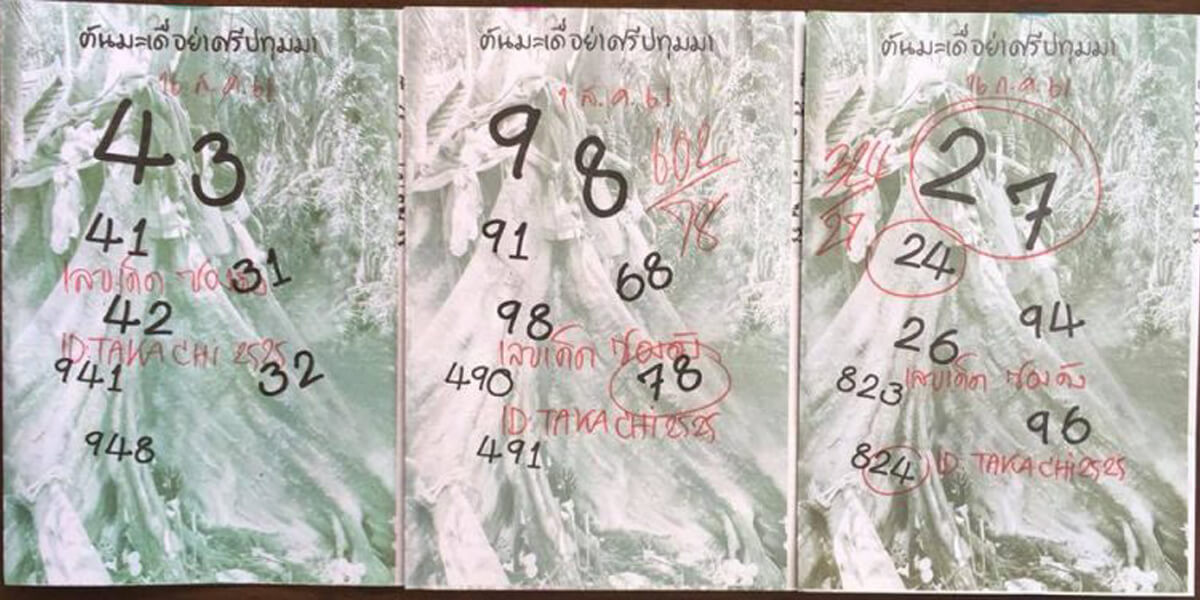 ต้นมะเดื่อย่าศรีปทุมมา
16 ส.ค. 61
4 3
41
31
เลขเด็ด ซองดัง
42
ID: TAKACHI 2525
941
32
948
ต้นมะเดื่อย่าศรีปทุมมา
1 ส.ค. 61
9 8
602
78
91
68
98
เลขเด็ด ซองดัง
490
78
ID: TAKACHI 2525
491
ต้นมะเดื่อย่าศรีปทุมมา
16 ก.ค. 61
2 7
324
27
24
94
26
823
เลขเด็ด ซองดัง
96
824
ID: TAKACHI 2525